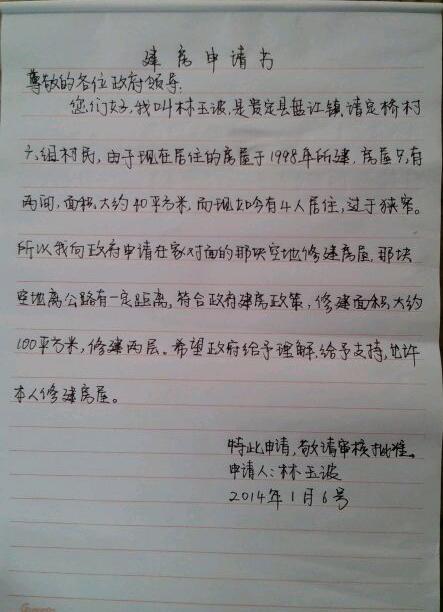 建房申请书
尊敬的各位政府领导:
您们好,我叫林玉波,是贵定县盘江镇,请定桥村
六组村民,由于现在居住的房屋于1998年所建,房屋只有
两间,面积大约40平方米,而现如今有4人居住,过于狭窄。
所以我向政府申请在家对面的那块空地修建房屋,那块
空地离公路有一定距离,符合政府建房政策,修建面积大约
100平方米,修建两层。希望政府给予理解.给予支持,允许
本人修建房屋。
特此申请,敬请审核批准。
申请人:林玉波
2014年1月6号